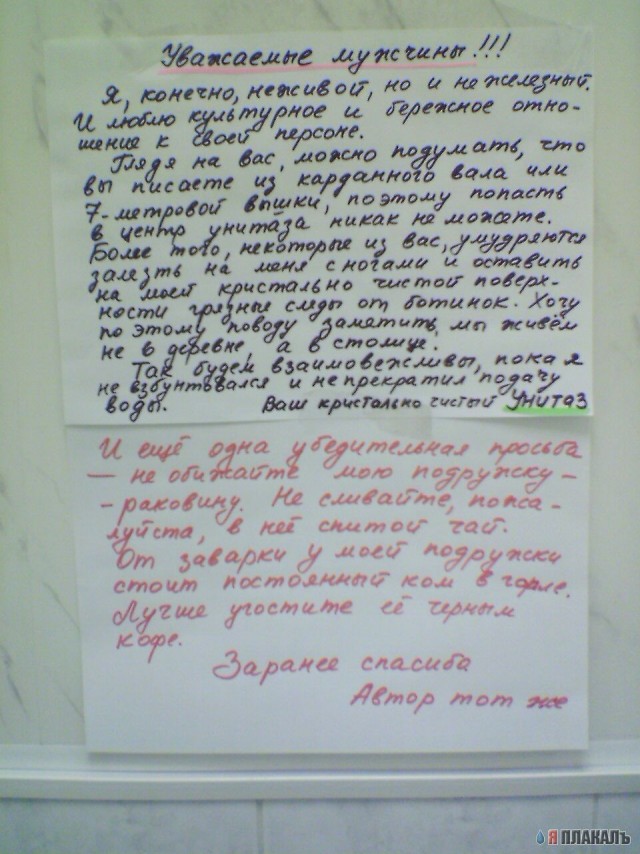 Уважаемые мужчины!!!
Я, конечно, неживой, но и не железный.
И люблю культурное и бережное отно-
шение к своей персоне.
Глядя на вас, можно подумать, что
вы писаете из карданного вала или
7-метровой вышки, поэтому попасть
в центр унитаза никак не можете.
Более того, некоторые из вас, умудряются
залезть на меня с ногами и оставить
на моей кристально чистой поверх-
ности грязные следы от ботинок. Хочу
по этому поводу заметить, мы живём
не в деревне, а в столице.
Так будем взаимовежливы, пока я
не взбунтовался и не прекратил подачу
воды. Ваш кристально чистый Унитаз
И ещё одна убедительная просьба
— не обижайте мою подружку -
- раковину. Не сливайте, пожа-
луйста, в неё спитой чай.
От заварки у моей подружки
стоит постоянный ком в горле.
Лучше угостите её черным
кофе.
Заранее спасиба
Автор тот же
Я ПЛАКАЛЪ